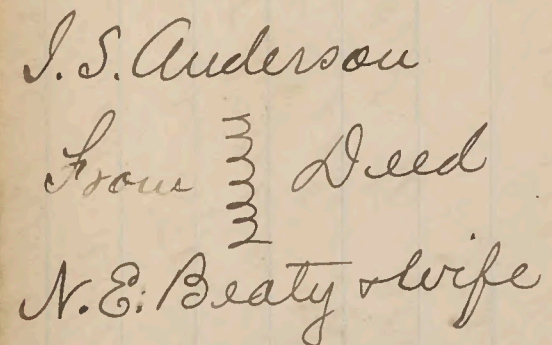 I. S. Anderson
From Deed
N. E. Beaty & wife